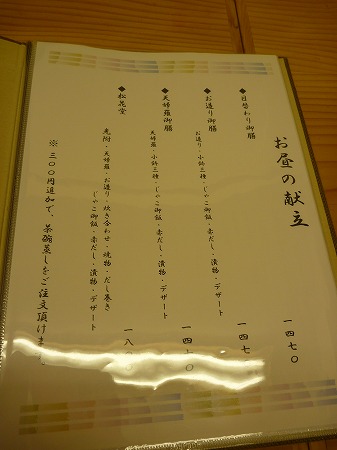 お昼の献立
◆日替わり御膳 一四七〇
◆お造り御膳 一四七
お造り・小鉢三種・じゃこ御飯・赤だし・漬物・デザート
◆天婦羅御膳 一四七〇
天婦羅・小鉢三種・じゃこ御飯・赤だし・漬物・デザート
◆松花堂 一八
先附・天婦羅・お造り・炊き合わせ・焼物・だし巻き
じゃこ御飯・赤だし・漬物・デザート
※三〇〇円追加で、茶碗蒸しをご注文頂けます。